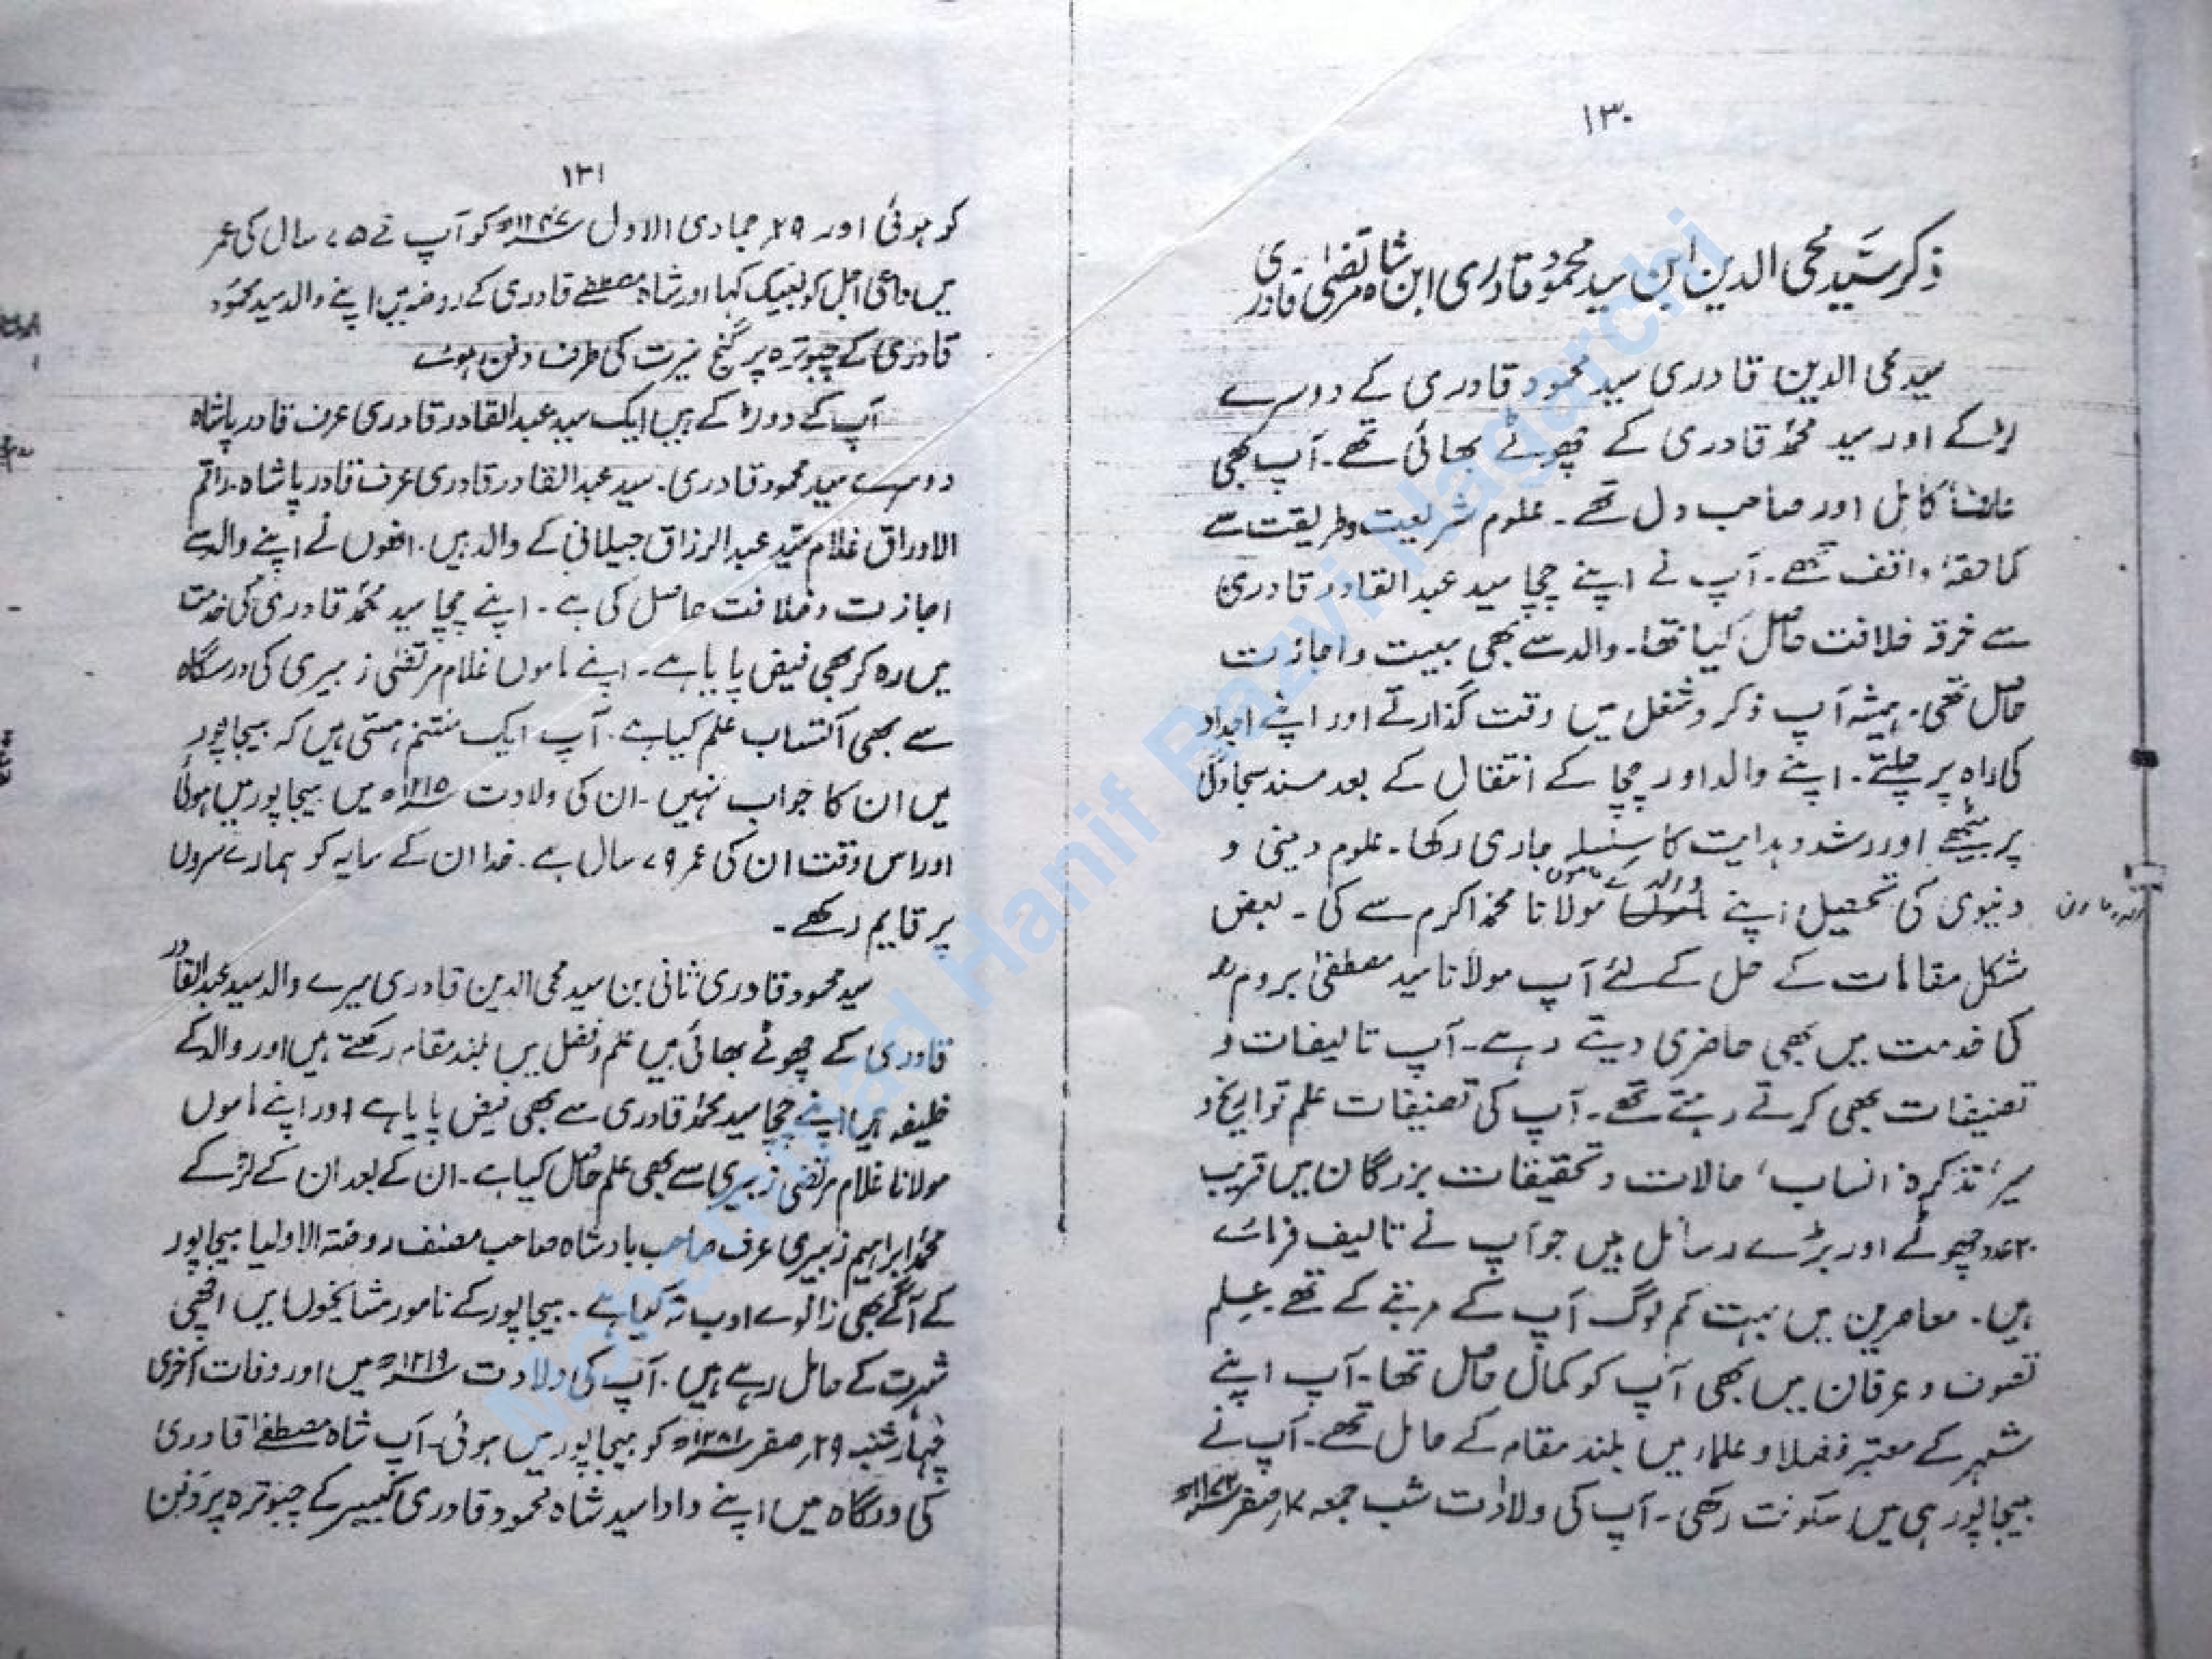 ۱۳۰
ذکر سید محی الدین ابن سید محمود قادری ابن شاہ مرتضٰی قادری
سید محی الدین قادری سید محمود قادری کے دوسرے
لڑکے اور سید محمد قادری کے چھوٹے بھائی تھے۔ آپ بھی
کامل اور صاحب دل تھے۔ علوم شریعت و طریقت سے
کماحقہٗ واقف تھے۔ آپ نے اپنے چچا سید عبد القادر قادری
سے خرقہ خلافت حاصل کیا تھا۔ والد سے بھی بیعت و اجازت
حاصل تھی۔ ہمیشہ آپ ذکر و شغل میں وقت گذارتے اور اپنے اجداد
کی راہ پر چلتے۔ اپنے والد اور چچا کے انتقال کے بعد مسند سجادگی
پر بیٹھے اور رشد و ہدایت کا سِلسلہ جاری رکھا۔ علوم دینی و
دنیوی کی تحصیل اپنے والد کے ماموں مولانا محمد اکرم سے کی۔ بعض
مشکل مقامات کے حل کے لئے آپ مولانا سید مصطفٰی بروم
کی خدمت میں بھی حاضری دیتے رہے۔ آپ تالیفات و
تصنیفات بھی کرتے رہتے تھے۔ آپ کی تصنیفات علم تواریخ و
سیر، تذکرہ انساب، حالات و تحقیقات بزرگان میں قریب
۲۰ عدد چھوٹے اور بڑے رسائل ہیں جو آپ نے تالیف فرمائے
ہیں۔ معاصرین میں بہت کم لوگ آپ کے مرتبے کے تھے۔ علم
تصوف و عرفان میں بھی آپ کو کمال حاصل تھا۔ آپ اپنے
شہر کے معتبر فضلا و علماء میں بلند مقام کے حامل تھے۔ آپ نے
بیجاپور ہی میں سکونت رکھی۔ آپ کی ولادت شب جمعہ ۱۷ صفر ۱۱۷۲ھ
۱۳۱
کو ہوئی اور ۲۹ جمادی الاول ۱۲۴۷ھ کو آپ نے ۷۵ سال کی عمر
میں داعی اجل کو لبیک کہا اور شاہ مصطفےٰ قادری کے روضہ میں اپنے والد سید محمود
قادری کے چبوترہ پر کی طرف دفن ہوئے
آپ کے دو لڑکے ہیں ایک سید عبد القادر قادری عرف قادر پاشاہ
دوسرے سید محمود قادری۔ سید عبد القادر قادری عرف قادر پاشاہ۔ راقم
الاوراق غلام سید عبد الرزاق جیلانی کے والد ہیں۔ انھوں نے اپنے والد سے
اجازت و خلافت حاصل کی ہے۔ اپنے چچا سید محمد قادری کی خدمت
میں رہ کر بھی فیض پایا ہے۔ اپنے ماموں غلام مرتضٰی زبیری کی درسگاہ
سے بھی اکتساب علم کیا ہے۔ آپ ایک مغتنم ہستی ہیں کہ بیجاپور
میں ان کا جواب نہیں۔ ان کی ولادت ۱۲۱۵ھ میں بیجاپور میں ہوئی
اور اس وقت ان کی عمر ۷۹ سال ہے۔ خدا ان کے سایہ کو ہمارے سروں
پر قایم رکھے۔
سید محمود قادری ثانی بن سید محی الدین قادری میرے والد سید عبد القادر
قادری کے چھوٹے بھائی ہیں علم و فضل میں بلند مقام رکھتے ہیں اور والد کے
خلیفہ ہیں اپنے چچا سید محمد قادری سے بھی فیض پایا ہے اور اپنے ماموں
مولانا غلام مرتضٰی زبیری سے بھی علم حاصل کیا ہے۔ ان کے بعد ان کے لڑکے
محمد ابراہیم زبیری عرف صاحب بادشاہ صاحب مصنف روضتہ الاولیا بیجاپور
کے آگے بھی زانوے ادب تہ کیا ہے۔ بیجاپور کے نامور مشایخوں میں اچھی
شہرت کے حامل رہے ہیں۔ آپ کی ولادت ۱۲۱۹ھ میں اور وفات آخری
چہار شنبہ ۲۹ صفر ۱۲۸۱ھ کو بیجاپور میں ہوئی۔ آپ شاہ مصطفےٰ قادری
کی درگاہ میں اپنے دادا سید شاہ محمود قادری کبیر کے چبوترہ پر دفن
Mohammad Hanif Razvi Nagarchi